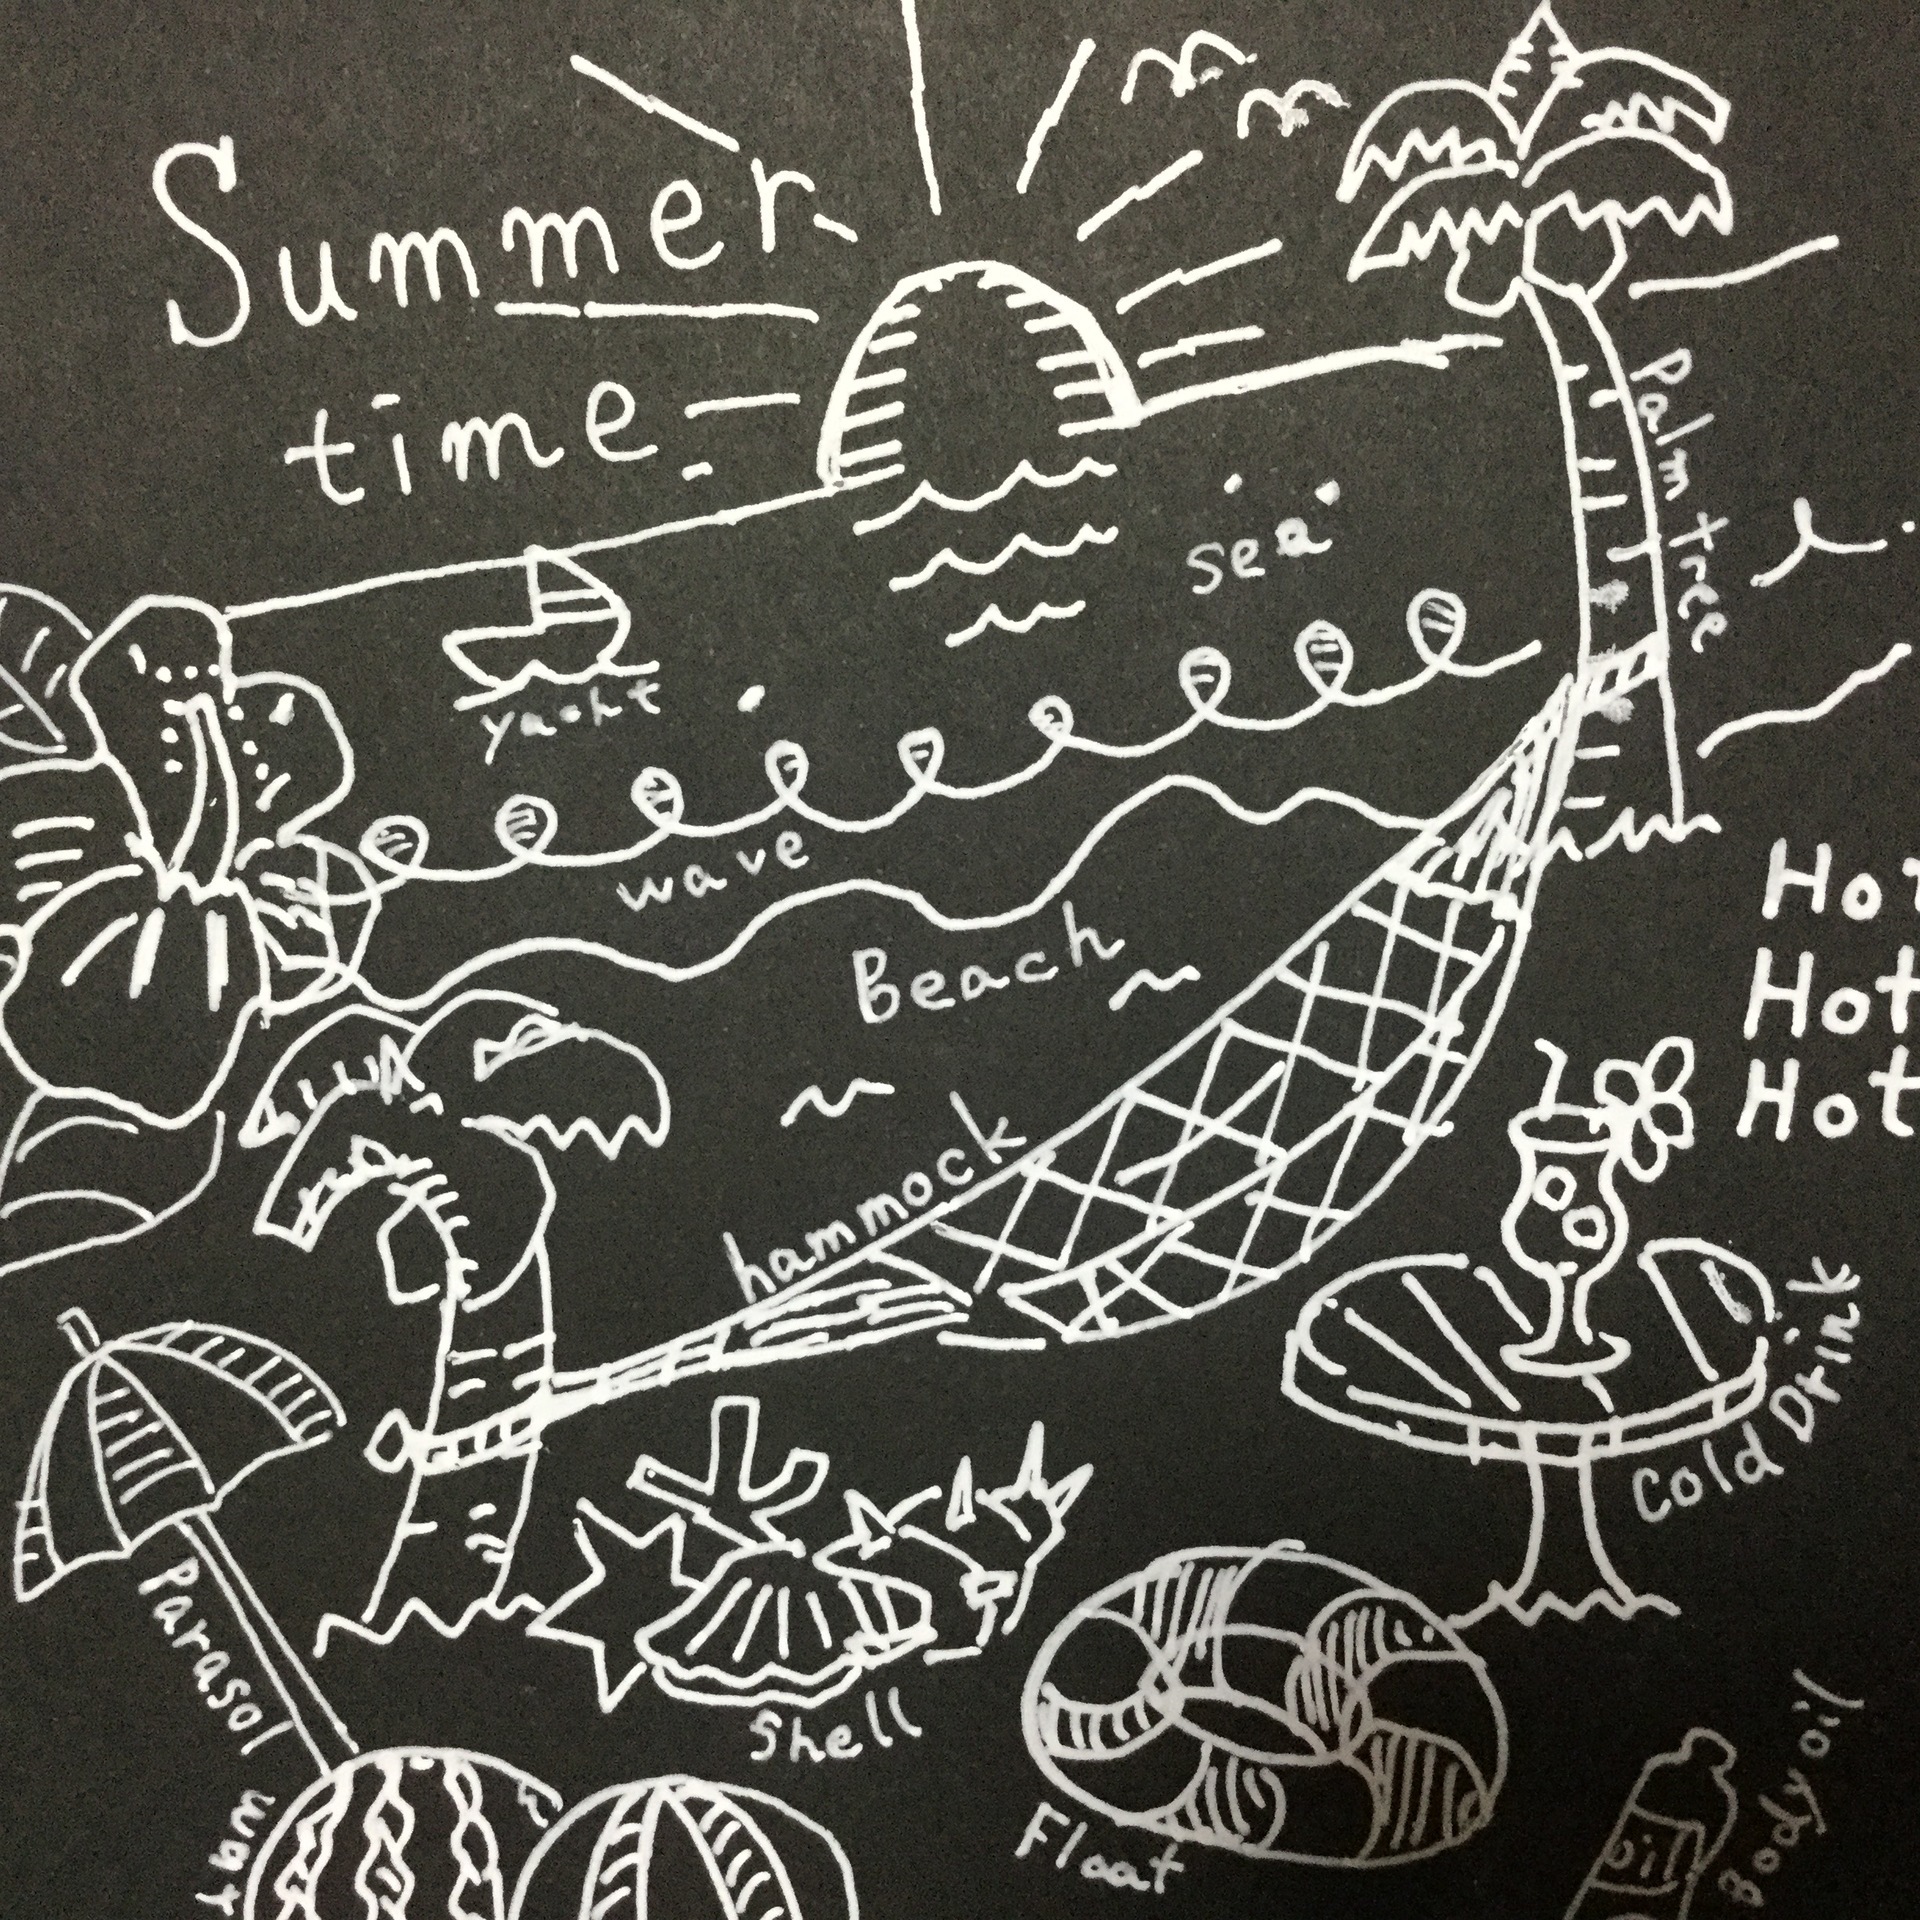 Summer
time
Palm tree
sea
yacht
wave
Beach
Hot
Hot
Hot
hammock
Cold Drink
Parasol
Shell
Float
Body oil
oil